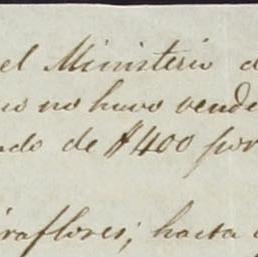 el Ministerio d
no no huvo vende
ndo de $400 por
iraflores; hasta